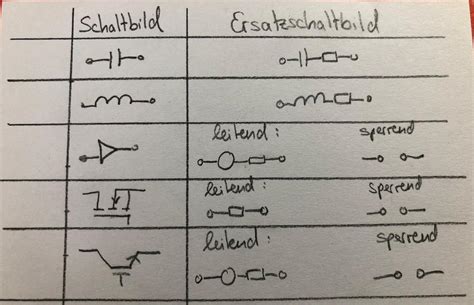 Schaltbild Ersatzschaltbild
leitend: sperrend
leitend: sperrend
leitend: sperrend